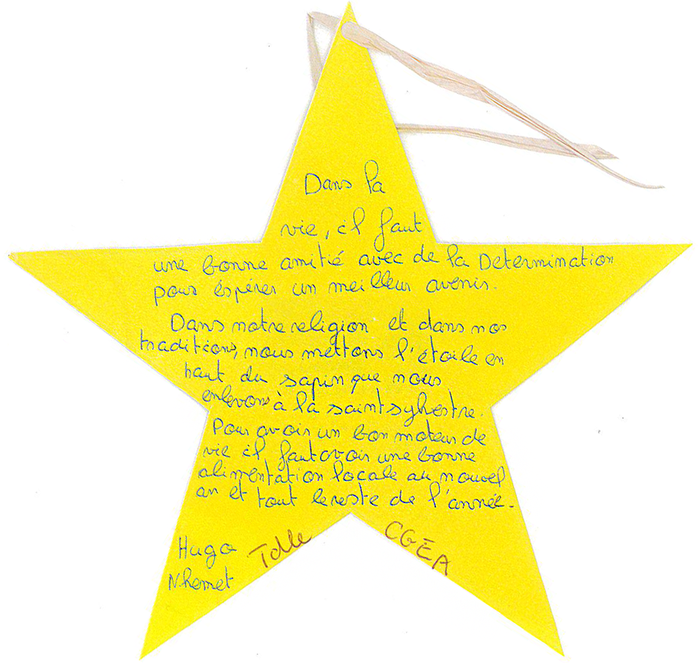 Dans la
vie, il faut
une bonne amitié avec de la Determination
pour éspérer un meilleur avenir.
Dans notre religion et dans nos
traditions, nous mettons l'étoile en
haut du sapin que nous
enlevons à la saint sylvestre.
Pour avoir un bon moteur de
vie il faut avoir une bonne
alimentation locale au nouvel
an et tout le reste de l'année.
Hugo Tdle CGEA
N.hemet